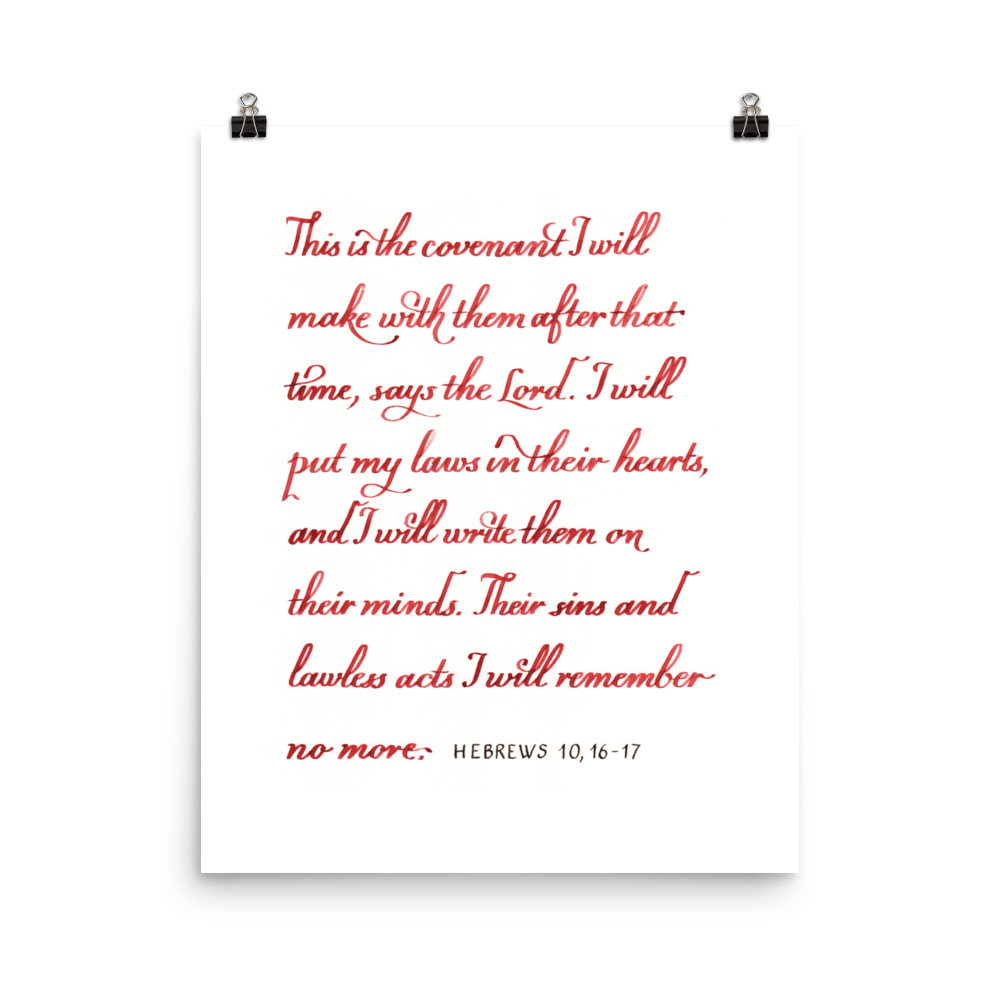 This is the covenant I will
make with them after that
time, says the Lord. I will
put my laws in their hearts,
and I will write them on
their minds. Their sins and
lawless acts I will remember
no more. HEBREWS 10, 16-17